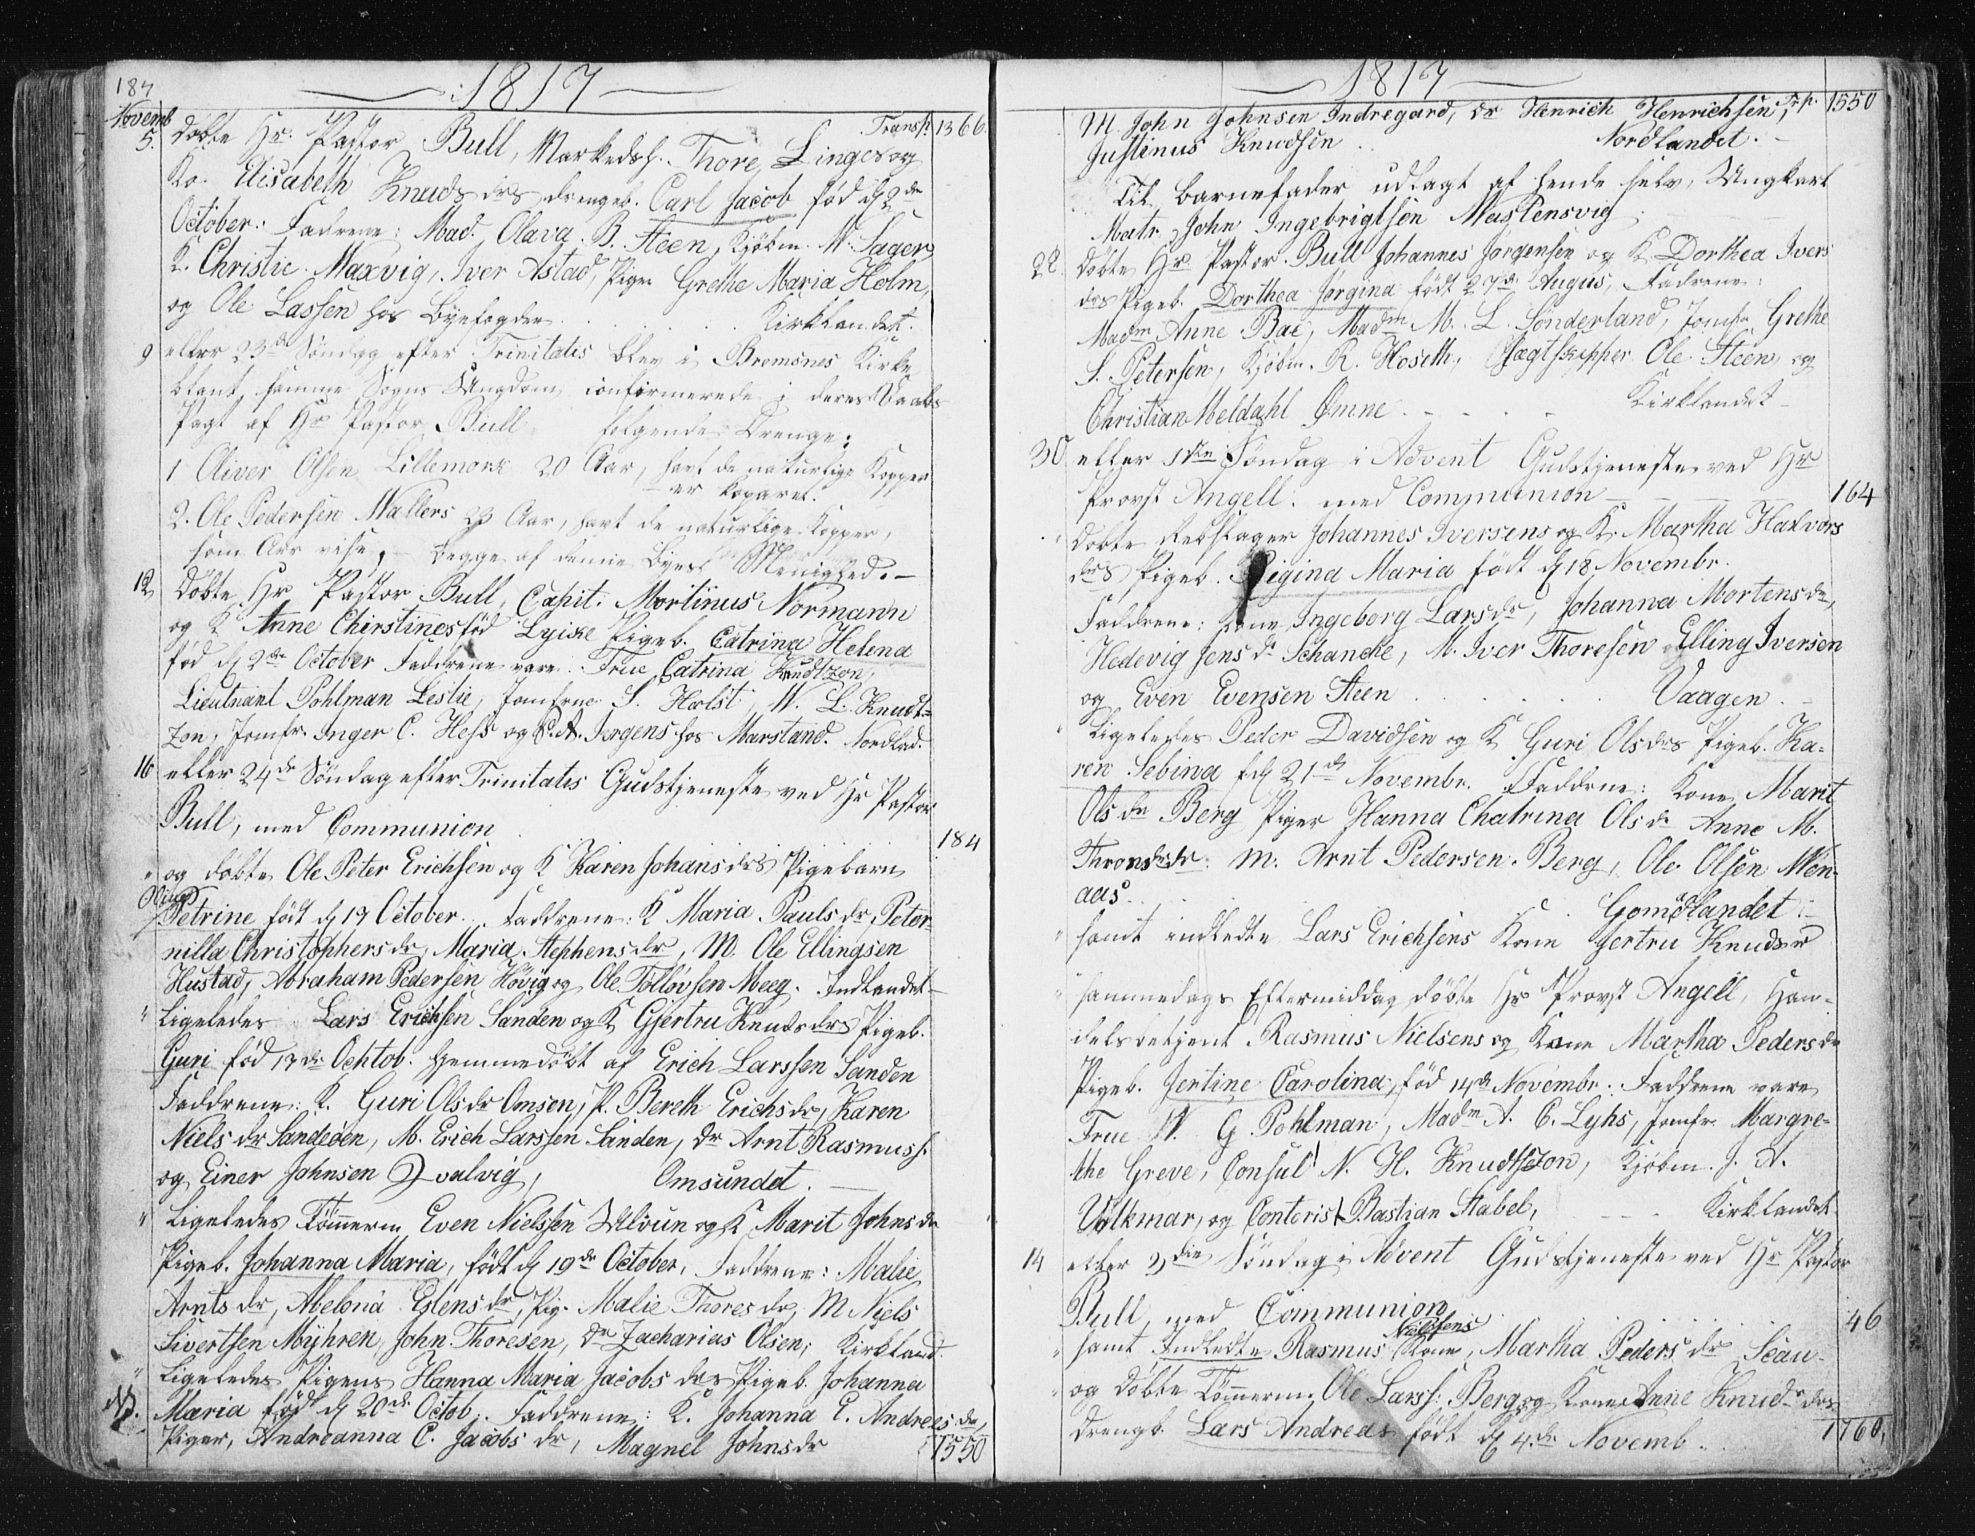 187
1817
Novemb
Transp: 1366.
5. Döbte Hr. Pastor Bull, Markedsh. Thore Linges og
Ko. Elisabeth Knudsdrs drengeb. Carl Jacob fød d 2de
October. Fadrene: Mad. Olava B. Steen, Kjöbm. N. Sager,
K. Christie Maxvig, Iver Astad, Pige Grethe Maria Holm,
og Ole Lassen hos Byefogden . . . Kirklandet.
9 eller 23de Söndag efter Trinitatis blev i Bremsnes Kirke
blant samme Sogns Ungdom confirmerede i deres Daabs
Pagt af Hr Pastor Bull følgende Drenge:
1 Oliver Olsen Lillemork 20 Aar, havt de naturlige Kopper
er koparet.
2. Ole Pedersen Wallers 23 Aar, havt de naturlige Kopper,
som Arr vise, begge af denne Byes Menighed.
12 Döbte Hr Pastor Bull, Capit. Mortinus Normann
og K Anne Chirstines fød Lyike Pigeb. Catrina Helena
fød d 2de October Faddrene vare Frue Catrina Knudtzon,
Lieutnant Pohlman Leslie, Jomfrue S. Holst, N. L. Knudt=
zon, Jomfr. Inger C. Hess og C. A. Jørgens hos Marstand. Nordlad.
16 eller 24de Söndag efter Trinitatis Gudstjeneste ved Hr Pastor
Bull, med Communion
184
" og døbte Ole Peter Erichsen og K Karen Johansdrs Pigebarn
Petrine født d 19 October. Faddrene: K Maria Paulsdr, Peter-
nilla Christophersdr, Maria Stephensdr, M. Ole Ellingsen
Hustad, Abraham Pedersen Höviig og Ole Tollövsen Meeg. Indlandet
" Ligeledes Lars Erichsen Sanden og K Gjertru Knudsdrs Pigeb.
Guri fød 17de Ochtob. hjemmedöbt af Erich Larssen Sanden
Faddrene: K. Guri Olsdr Omsen, P. Bereth Erichsdr, Karen
Nielsdr Sandeöen, M. Erich Larssen Sanden, Dr Arnt Rasmuss.
og Einer Johnsen Qvalvig, Omsundet.
" Ligeledes Tömmerm Even Nielssen og K Marit Johnsdr
Pigeb. Johanna Maria, født d 19de October, Faddrene: Malie
Arntsdr, Abelona Estensdr, Pig. Malie Thoresdr, M Niels
Sivertsen Myhren, John Thoresen, Dr Zacharias Olsen, Kirkland.
" Ligeledes Pigens Hanna Maria Jacobsdrs Pigeb. Johanna
Maria født d 20de Octob. Faddrene: K. Johanna E. Andreesdr,
Piger, Andreanna C. Jacobsdr, Magnel Johnsdr
1550
1817
Trp. 1550
M. John Johnsen Indregard, Dr Henrich Henrichsen,
Justinus Knudsen . . Nordlandet.
Til Barnefader udlagt af hende selv, Ungkarl
Matr. John Ingebrigtsen Mastensvig
22 döbte Hr Pastor Bull Johannes Jørgensen og K Dorthea Ivers
drs Pigeb. Dorthea Jørgina født 27de Augus, Fadrene:
Madm Anne Bae, Madm M. L. Sønderland, Jomfr Grethe
S. Petersen, Kjöbm. R. Hoseth, Jægtskipper Ole Steen, og
Christian Meldahl Ømne . . . Kirklandet
30 eller 1ste Söndag i Advent Gudstjeneste ved Hr
Provst Angell. med Communion
164
" döbte Rebslager Johannes Iversens og K. Martha Halvors
drs Pigeb. Regina Maria født d 18 Novembr.
Faddrene: Kone Ingeborg Larsdr, Johanna Mortensdr,
Hedevig Jensdr Schancke, M. Iver Thoresen, Elling Iversen
og Even Evensen Steen . . . Vaagen.
" Ligeledes Peder Davidsen og K Guri Olsdrs Pigeb. Ka-
ren Sebina f d 21de Novembr. Faddrne: Kone Marit
Olsdr Berg Piger Hanna Chatrina Olsdr Anne M.
Thronsdr: M. Arnt Pedersen Berg, Ole Olsen Men-
aas. . . . Gomölandet.
" samt indledte Lars Erichsens Kone Gertru Knudsdr
" sammedags Eftermiddag döbte Hr Provst Angell, Han-
delsbetjent Rasmus Nielsens og Kone Martha Pedersdr
Pigeb. Jertine Carolina, fød 14de Novembr. Faddrene vare
Frue N. G. Pohlman, Madm A. C. Lyhs, Jomfr. Margre-
the Greve, Consul N. H. Knudtzon, Kjöbm. J. A.
Volkmar, og Contorist Bastian Stabel, Kirklandet
14 eller 3die Söndag i Advent Gudstjeneste ved Hr Pastor
Bull, med Communion
46
" samt Indledte Rasmus Nielsens Kone, Martha Pedersdr
" og döbte Tömmerm. Ole Larss: Berg og Kone Anne Knudsdrs
drengb. Lars Andreas født d 4de Novemb.
1760.